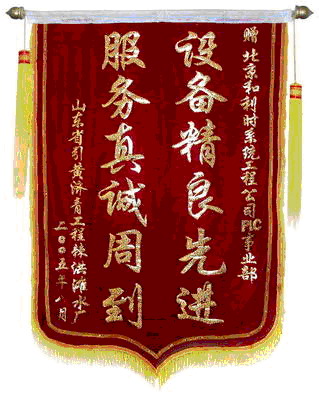 赠北京和利时系统工程公司PLC事业部
设备精良先进
服务真诚周到
山东省引黄济青工程棘洪滩水厂
二〇〇五年八月